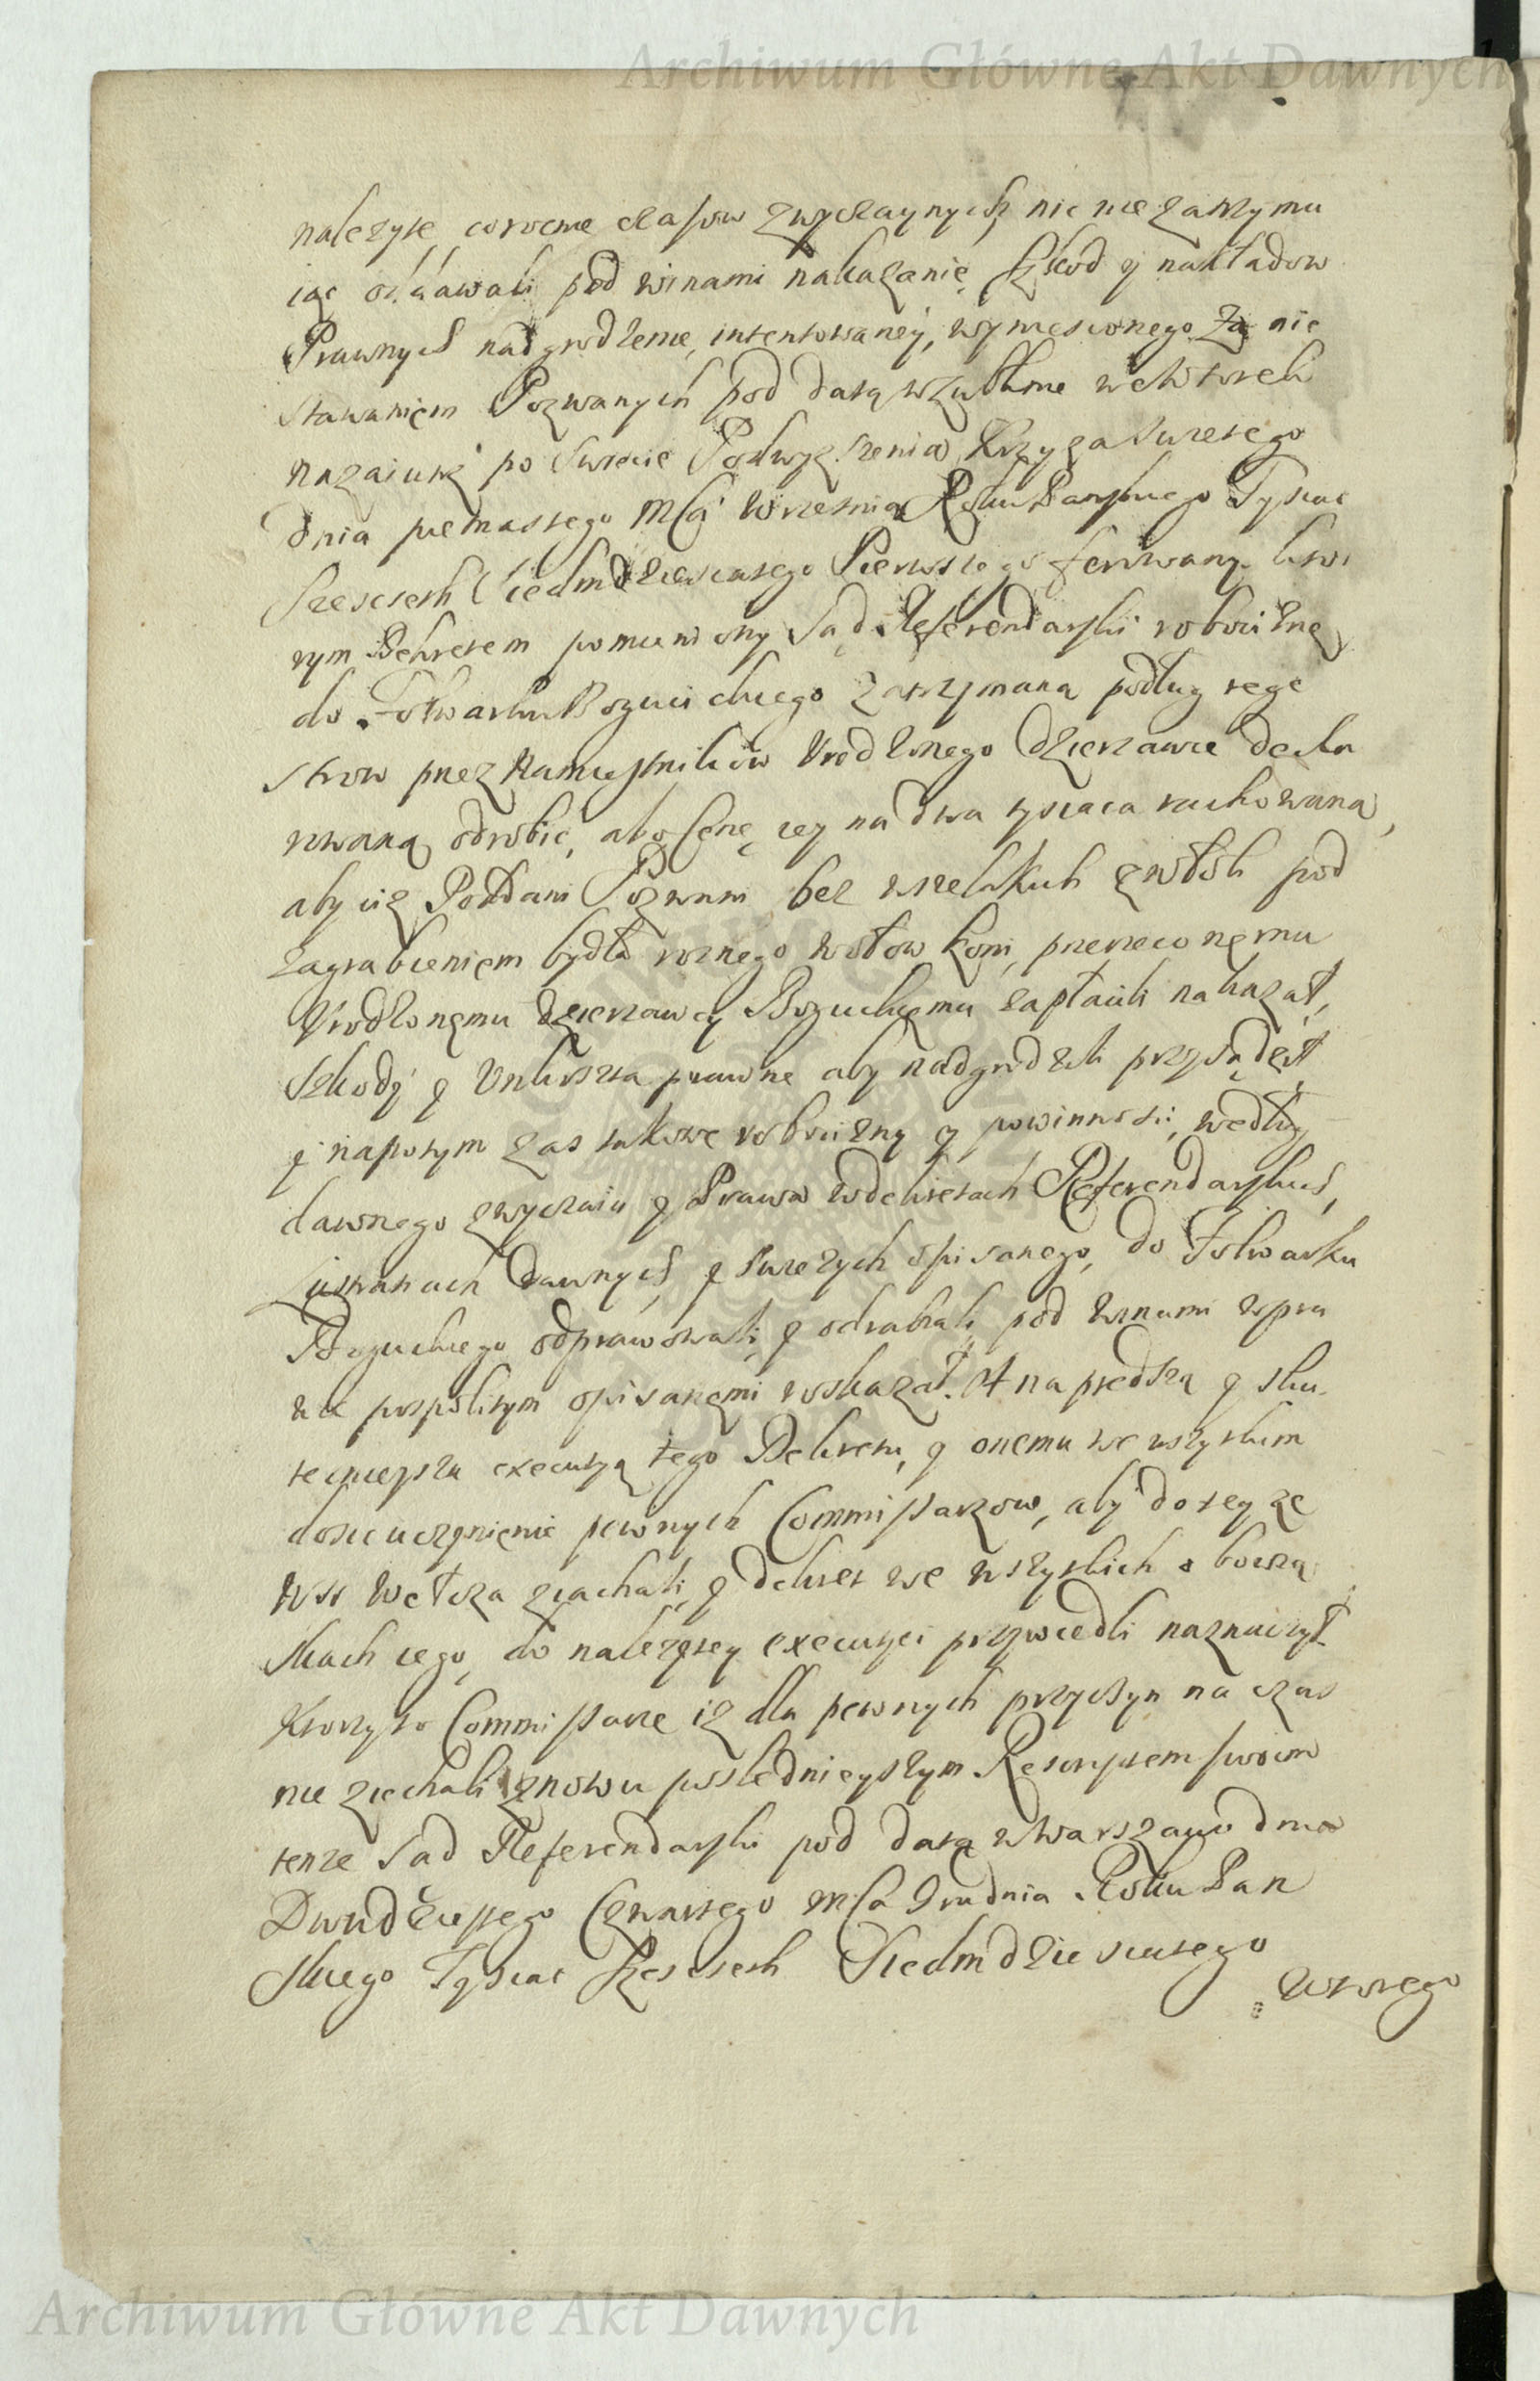 Archiwum Główne Akt Dawnych
należyte, corocznie czasow zwyczaynych, nic nie zatrzymu
iąc oddawali pod winami nakazanie, szkod y nakładow
Prawnych nadgrodzenie, intentowaney, wyniesionego za nie
stawaniem Pozwanych pod datą w Lublinie we Wtorek
nazaiutrz po Swiecie Podwyzszenia Krzyza Swietego
dnia pietnastego Msca Wrzesnia Roku Panskiego Tysiac
Szescseth Siedmdziesiatego Pierwszego ferowany. kto
rym Dekretem pomieniony Sąd Referendarski robociznę
do Folwarku Bozuickiego zatrzymaną podług rege
strow przez Namiestnikow Urodzonego Dzierzawce dekla
rowaną odrobic, abo Cenę iey na dwa tysiaca rachowana,
aby ciz Poddani Pozwani bez wszelkich zwłok pod
zagrabieniem bydła roznego wołow koni, przerzeconemu
Urodzonemu Dzierzawcy Bozuickiemu zapłacili nakazał,
Szkody y Unkoszta prawne aby nadgrodzili przysądził
y napotym zas takowe robocizny y powinnosci, według
dawnego zwyczaiu y Prawa w dekretach Referendarskich,
Lustratiach Dawnych, y swiezych opisanego, do Folwarku
Bozuickiego odprawowali y odrabiali pod winami w pra
wie pospolitym opisanemi wskazał. A na prędszą y sku
tecznieyszą executią tego Dekretu, y onemu we wszytkim
dosic uczynienie pewnych Commissarzow, aby do tey ze
Wsi Wełcza ziachali, y dekret we wszytkich obowią
skach iego, do nalezytey executiei przywiedli naznaczył.
Ktorzy to Commissarze iz dla pewnych przyczyn na czas
nie ziechali znowu posslednieyszym Rescriptem swoim
tenze Sad Referendarski pod datą w Warszawie dnia
Dwudziestego Czwartego Msca Grudnia Roku Pan
skiego Tysiac Szescseth Siedmdziesiatego
wtorego
Archiwum Główne Akt Dawnych